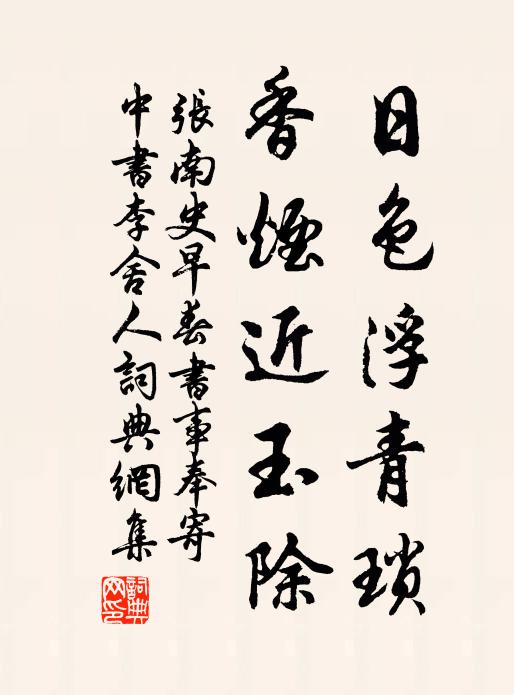 日色浮青瑣
香煙近玉除
張南史早春書事奉寄
中書李舍人詞典網集
詞典
网印